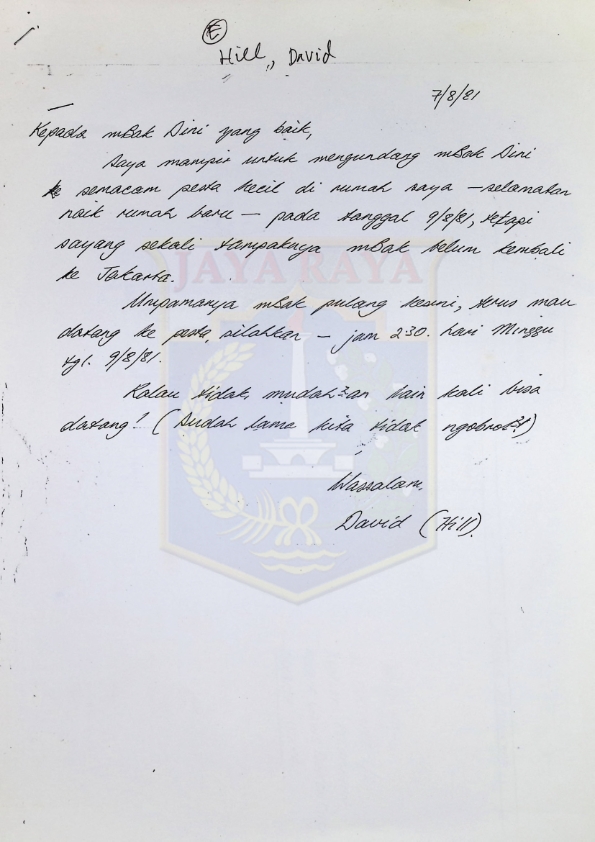 E
Hill, David
7/8/81
Kepada mBak Dini yang baik,
Saya mampir untuk mengundang mBak Dini
ke semacam pesta kecil di rumah saya – selamatan
naik rumah baru – pada tanggal 9/8/81, tetapi
sayang sekali tampaknya mBak belum kembali
ke Jakarta.
JAYA RAYA
Umpamanya mBak pulang kesini, terus mau
datang ke pesta, silahkan – jam 230. hari Minggu
tgl. 9/8/81.
Kalau tidak, mudah2an lain kali bisa
datang! (Sudah lama kita tidak ngobrol2!)
Wassalam,
David (Hill).